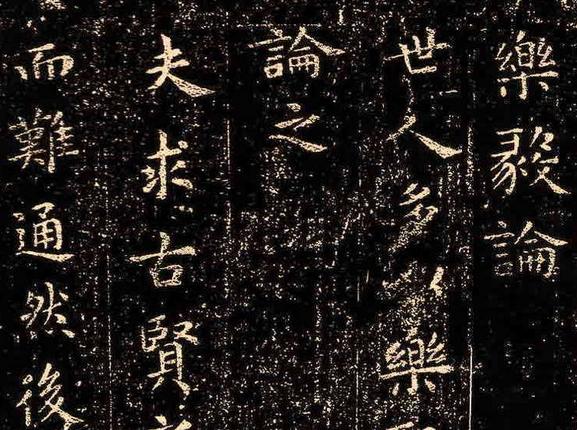 樂毅論
世人多以樂
論之
夫求古賢
而難通然後